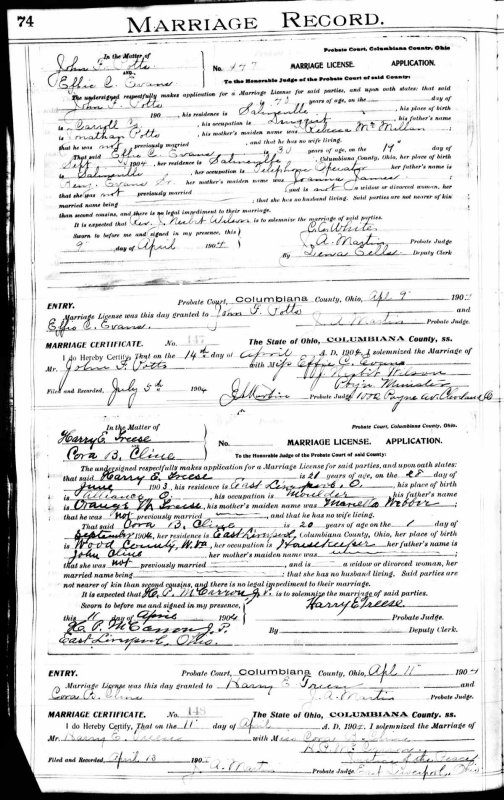 74
MARRIAGE RECORD.
In the Matter of
Probate Court, Columbiana County, Ohio
John F. Potts
AND
Effie C. Evans
No. 447
MARRIAGE LICENSE. APPLICATION.
To the Honorable Judge of the Probate Court of said County:
The undersigned respectfully makes application for a Marriage License for said parties, and upon oath states: that said
John F. Potts is years of age, on the day of
190 , his residence is Salineville his place of birth
is Carroll Co his occupation is Druggist his father's name
is Jonathan Potts his mother's maiden name was Rebecca McMillan ;
that he was previously married and that he has no wife living.
That said Effie C. Evans is 30 years of age, on the 19" day of
Sept 1904, her residence is Salineville Columbiana County, Ohio, her place of birth
is Salineville her occupation is Telephone Operator her father's name is
Benj. Evans her mother's maiden name was ;
that she was not previously married and is not a widow or divorced woman, her
married name being that she has no husband living. Said parties are nearer of kin
than second cousins, and there is no legal impediment to their marriage.
It is expected that Rev. J. Nesbit Wilson is to solemnize the marriage of said parties.
Sworn to before and signed in my presence, this
9 day of April 1904
C.C. White
J. A. Martin Probate Judge.
By Deputy Clerk
ENTRY.
Probate Court, Columbiana County, Ohio, Apl 9" 1904
Marriage License was this day granted to John F. Potts and
Effie C. Evans. J. A. Martin Probate Judge.
MARRIAGE CERTIFICATE. No. 447 The State of Ohio, COLUMBIANA County, ss.
I do Hereby Certify, That on the 14th day of April A. D. 1904, I solemnized the Marriage of
Mr. John F. Potts with Miss Effie C. Evans
J. Nesbit Wilson
Minister
Filed and Recorded, July 5th 1904 J A Martin Probate Judge. Payne Av. Cleveland O
In the Matter of
Probate Court, Columbiana County, Ohio.
Harry E. Treese
AND
Cora B. Cline
No.
MARRIAGE LICENSE. APPLICATION.
To the Honorable Judge of the Probate Court of said County:
The undersigned respectfully makes application for a Marriage License for said parties, and upon oath states:
that said Harry E. Treese is 21 years of age, on the 28 day of
June 1903, his residence is East Liverpool, O. his place of birth
is Alliance O. his occupation is Moulder his father's name
is M. Treese his mother's maiden name was Webber ;
that he was not previously married and that he has no wife living.
That said Cora B. Cline is 20 years of age on the 1 day of
September 1904, her residence is East Liverpool, Columbiana County, Ohio, her place of birth
is Wood County, W. Va, her occupation is Housekeeper her father's name is
John Cline her mother's maiden name was ;
that she was not previously married , and is a widow or divorced woman, her
married name being ; that she has no husband living. Said parties are
not nearer of kin than second cousins, and there is no legal impediment to their marriage.
It is expected that H. P. McCarron J.P. is to solemnize the marriage of said parties.
Sworn to before and signed in my presence,
this 11 day of April 1904
Harry E Treese
Probate Judge.
H. P. McCarron J. P.
East Liverpool, Ohio.
By Deputy Clerk.
ENTRY.
Probate Court, Columbiana County, Ohio, Apl 11" 1904
Marriage License was this day granted to Harry E Treese and
Cora B. Cline J. A. Martin Probate Judge.
MARRIAGE CERTIFICATE. No. 448 The State of Ohio, COLUMBIANA County, ss.
I do Hereby Certify, That on the 11" day of April A. D. 1904, I solemnized the Marriage of
Mr. Harry E. Treese with Miss Cora B. Cline
Justice of the Peace
Filed and Recorded, April 13 190 J. A. Martin Probate Judge. East Liverpool, Ohio